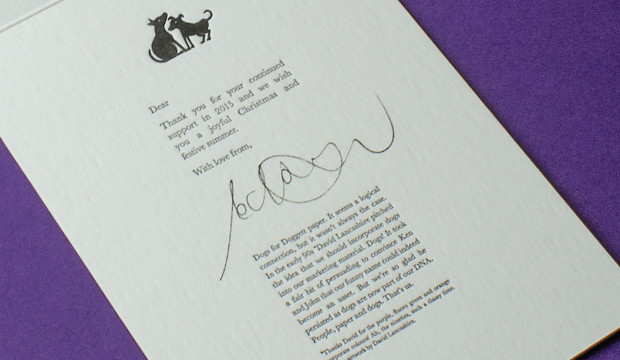 Dear
Thank you for your continued
support in 2015 and we wish
you a joyful Christmas and
festive summer.
With love from,
Dogs for Doggett paper. It seems a logical
connection, but it wasn't always the case.
In the early 90s *David Lancashire pitched
the idea that we should incorporate dogs
into our marketing material. Dogs! It took
a fair bit of persuading to convince Ken
and John that our funny name could indeed
become an asset. But we're so glad he
persisted as dogs are now part of our DNA.
People, paper and dogs. That's us.
*Thanks David for the purple, fluoro green and orange
corporate colours! Ah, the nineties, such a classy time.
Artwork by David Lancashire.